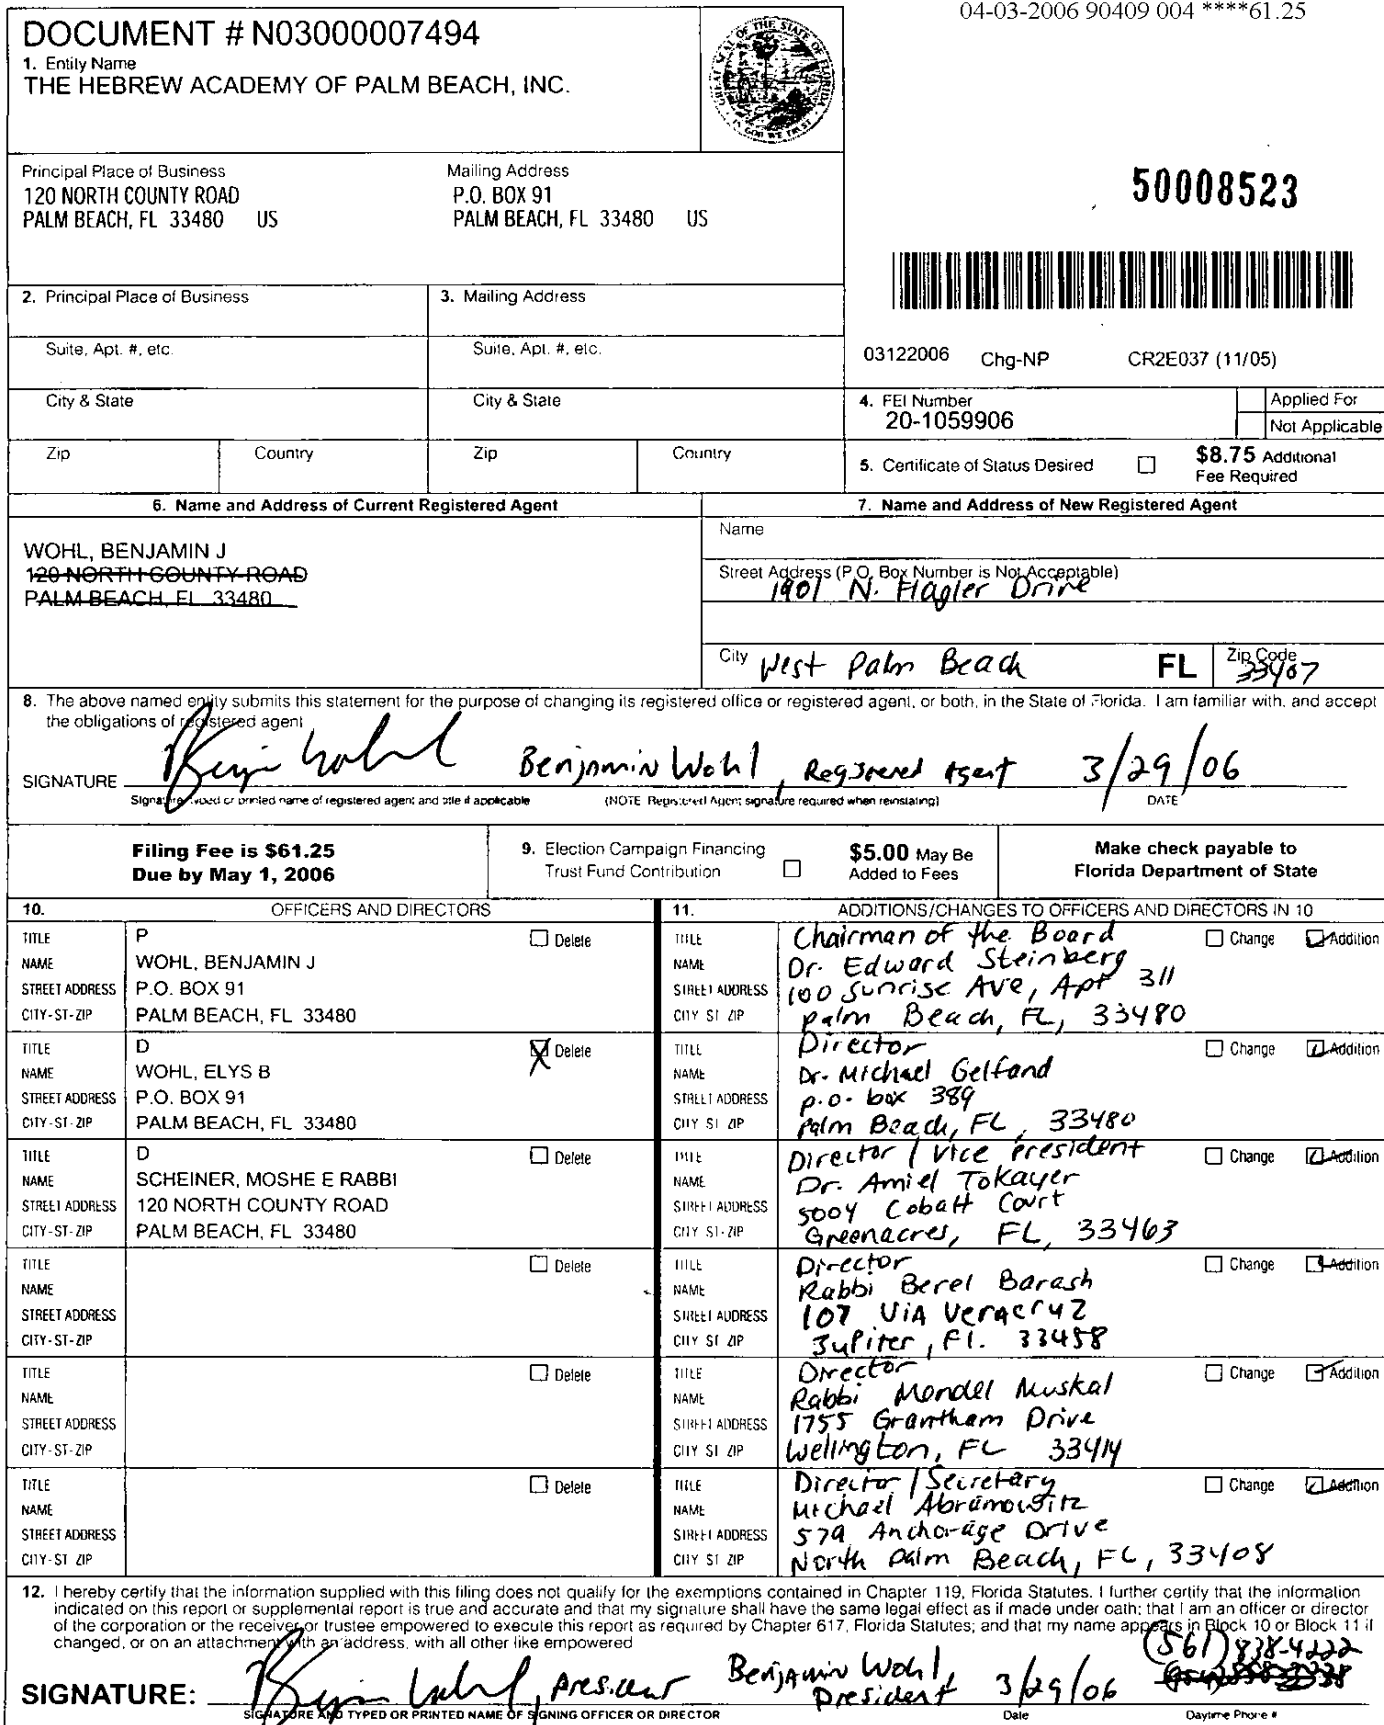 04-03-2006 90409 004 ****61.25
DOCUMENT # N03000007494
1. Entity Name
THE HEBREW ACADEMY OF PALM BEACH, INC.
Principal Place of Business
120 NORTH COUNTY ROAD
PALM BEACH, FL 33480 US
Mailing Address
P.O. BOX 91
PALM BEACH, FL 33480 US
50008523
2. Principal Place of Business
3. Mailing Address
Suite, Apt. #, etc.
Suite, Apt. #, etc.
03122006 Chg-NP CR2E037 (11/05)
City & State
City & State
4. FEI Number
20-1059906
Applied For
Not Applicable
Zip Country Zip Country
5. Certificate of Status Desired
$8.75 Additional
Fee Required
6. Name and Address of Current Registered Agent
WOHL, BENJAMIN J
120 NORTH COUNTY ROAD
PALM BEACH, FL 33480
7. Name and Address of New Registered Agent
Name
Street Address (P.O. Box Number is Not Acceptable)
1901 N. Flagler Drive
City West Palm Beach FL Zip Code 33407
8. The above named entity submits this statement for the purpose of changing its registered office or registered agent, or both, in the State of Florida. I am familiar with, and accept
the obligations of registered agent
SIGNATURE Benjamin Wohl, Registered Agent 3/29/06
Signature, typed or printed name of registered agent and title if applicable (NOTE Registered Agent signature required when reinstating) DATE
Filing Fee is $61.25
Due by May 1, 2006
9. Election Campaign Financing
Trust Fund Contribution
$5.00 May Be
Added to Fees
Make check payable to
Florida Department of State
10. OFFICERS AND DIRECTORS
TITLE P Delete
NAME WOHL, BENJAMIN J
STREET ADDRESS P.O. BOX 91
CITY-ST-ZIP PALM BEACH, FL 33480
TITLE D Delete
NAME WOHL, ELYS B
STREET ADDRESS P.O. BOX 91
CITY-ST-ZIP PALM BEACH, FL 33480
TITLE D Delete
NAME SCHEINER, MOSHE E RABBI
STREET ADDRESS 120 NORTH COUNTY ROAD
CITY-ST-ZIP PALM BEACH, FL 33480
TITLE Delete
NAME
STREET ADDRESS
CITY-ST-ZIP
TITLE Delete
NAME
STREET ADDRESS
CITY-ST-ZIP
TITLE Delete
NAME
STREET ADDRESS
CITY-ST-ZIP
11. ADDITIONS/CHANGES TO OFFICERS AND DIRECTORS IN 10
TITLE Chairman of the Board Change Addition
NAME Dr. Edward Steinberg
STREET ADDRESS 100 Sunrise Ave, Apt 311
CITY ST ZIP Palm Beach, FL, 33480
TITLE Director Change Addition
NAME Dr. Michael Gelfand
STREET ADDRESS P.O. box 389
CITY ST ZIP Palm Beach, FL, 33480
TITLE Director / Vice President Change Addition
NAME Dr. Amiel Tokayer
STREET ADDRESS 5004 Cobalt Court
CITY ST-ZIP Greenacres, FL, 33463
TITLE Director Change Addition
NAME Rabbi Berel Barash
STREET ADDRESS 107 Via Veracruz
CITY ST ZIP Jupiter, Fl. 33458
TITLE Director Change Addition
NAME Rabbi Mendel Muskal
STREET ADDRESS 1755 Grantham Drive
CITY ST ZIP Wellington, FL 33414
TITLE Director / Secretary Change Addition
NAME Michael Abramowitz
STREET ADDRESS 579 Anchorage Drive
CITY ST ZIP North Palm Beach, FL, 33408
12. I hereby certify that the information supplied with this filing does not qualify for the exemptions contained in Chapter 119, Florida Statutes. I further certify that the information
indicated on this report or supplemental report is true and accurate and that my signature shall have the same legal effect as if made under oath; that I am an officer or director
of the corporation or the receiver or trustee empowered to execute this report as required by Chapter 617, Florida Statutes; and that my name appears in Block 10 or Block 11 if
changed, or on an attachment with an address, with all other like empowered
(561) 838-4222
SIGNATURE: , President Benjamin Wohl, President 3/29/06
SIGNATURE AND TYPED OR PRINTED NAME OF SIGNING OFFICER OR DIRECTOR Date Daytime Phone #